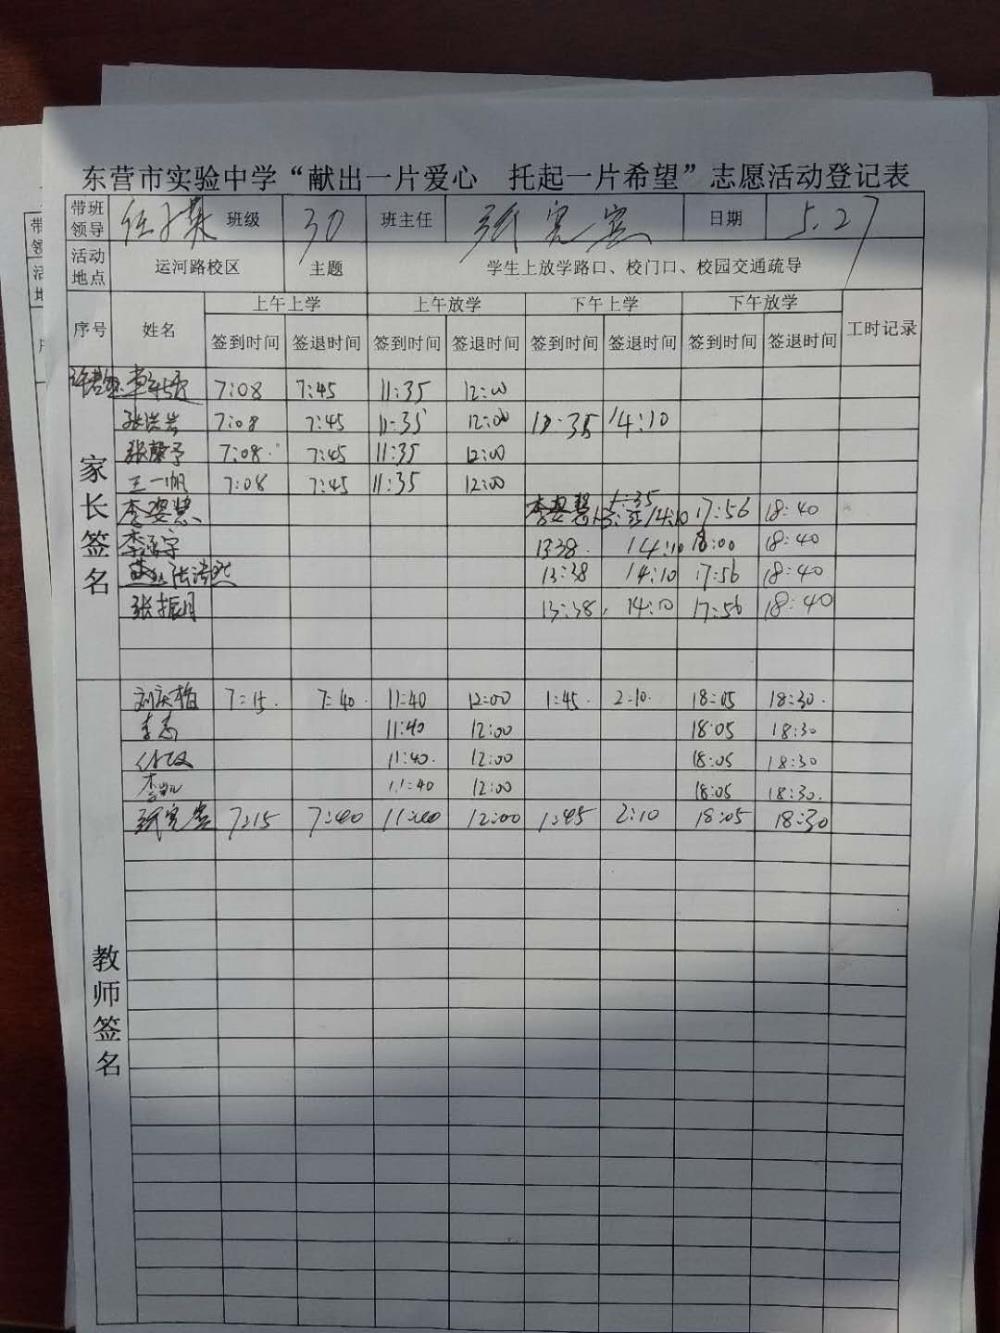 东营市实验中学“献出一片爱心 托起一片希望”志愿活动登记表
带班领导 班级 30 班主任 张宪宾 日期 5.27
活动地点 运河路校区 主题 学生上放学路口、校门口、校园交通疏导
序号 姓名 上午上学 上午放学 下午上学 下午放学 工时记录
签到时间 签退时间 签到时间 签退时间 签到时间 签退时间 签到时间 签退时间
家长签名
7:08 7:45 11:35 12:00
张洪岩 7:08 7:45 11:35 12:00 14:10
张馨予 7:08 7:45 11:35 12:00
王一帆 7:08 7:45 11:35 12:00
李姿慧 李姿慧 14:10 17:56 18:40
13:38 14:10 18:00 18:40
13:38 14:10 17:56 18:40
张振月 13:38 14:10 17:56 18:40
教师签名
刘庆梅 7:15 7:40 11:40 12:00 1:45 2:10 18:05 18:30
11:40 12:00 18:05 18:30
11:40 12:00 18:05 18:30
11:40 12:00 18:05 18:30
张宪宾 7:15 7:40 11:40 12:00 1:45 2:10 18:05 18:30